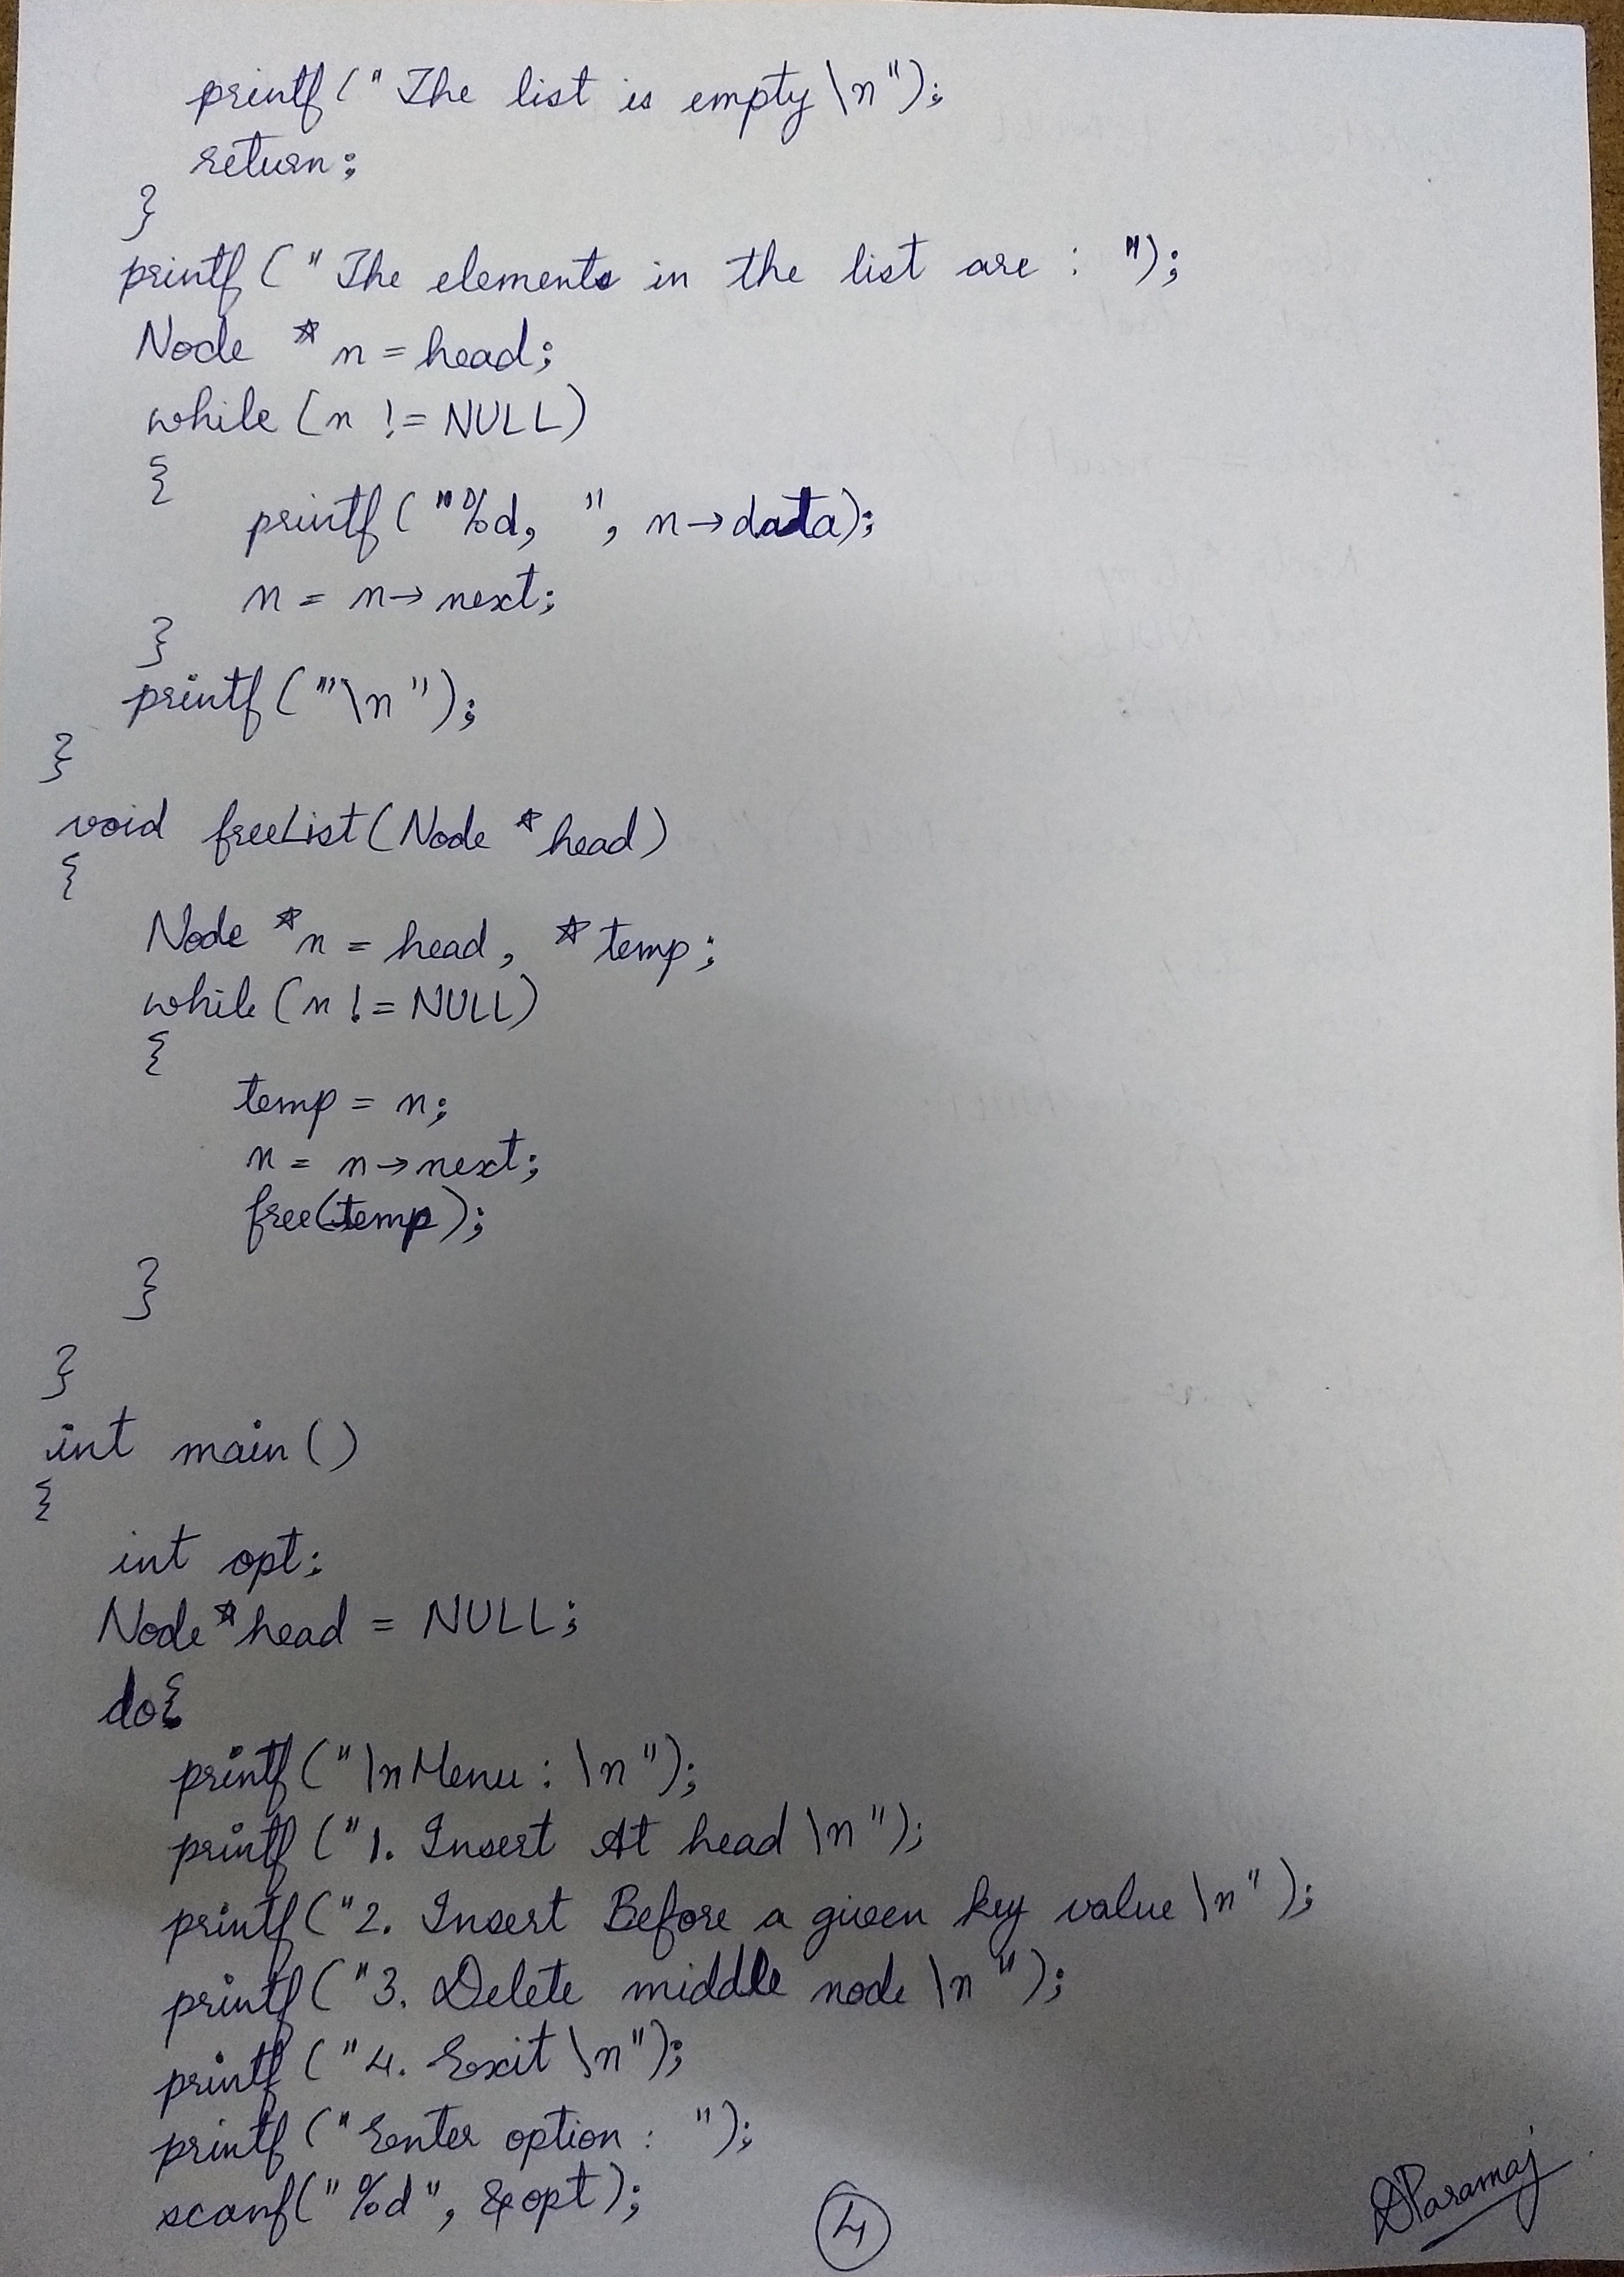 printf("The list is empty\n");
return;
}
printf("The elements in the list are : ");
Node *n = head;
while (n != NULL)
{
printf("%d, ", n→data);
n = n→next;
}
printf("\n");
}
void freeList(Node *head)
{
Node *n = head, *temp;
while (n != NULL)
{
temp = n;
n = n→next;
free(temp);
}
}
int main()
{
int opt;
Node *head = NULL;
do{
printf("\nMenu : \n");
printf("1. Insert At head \n");
printf("2. Insert Before a given key value \n");
printf("3. Delete middle node \n");
printf("4. Exit \n");
printf("Enter option : ");
scanf("%d", &opt);
4